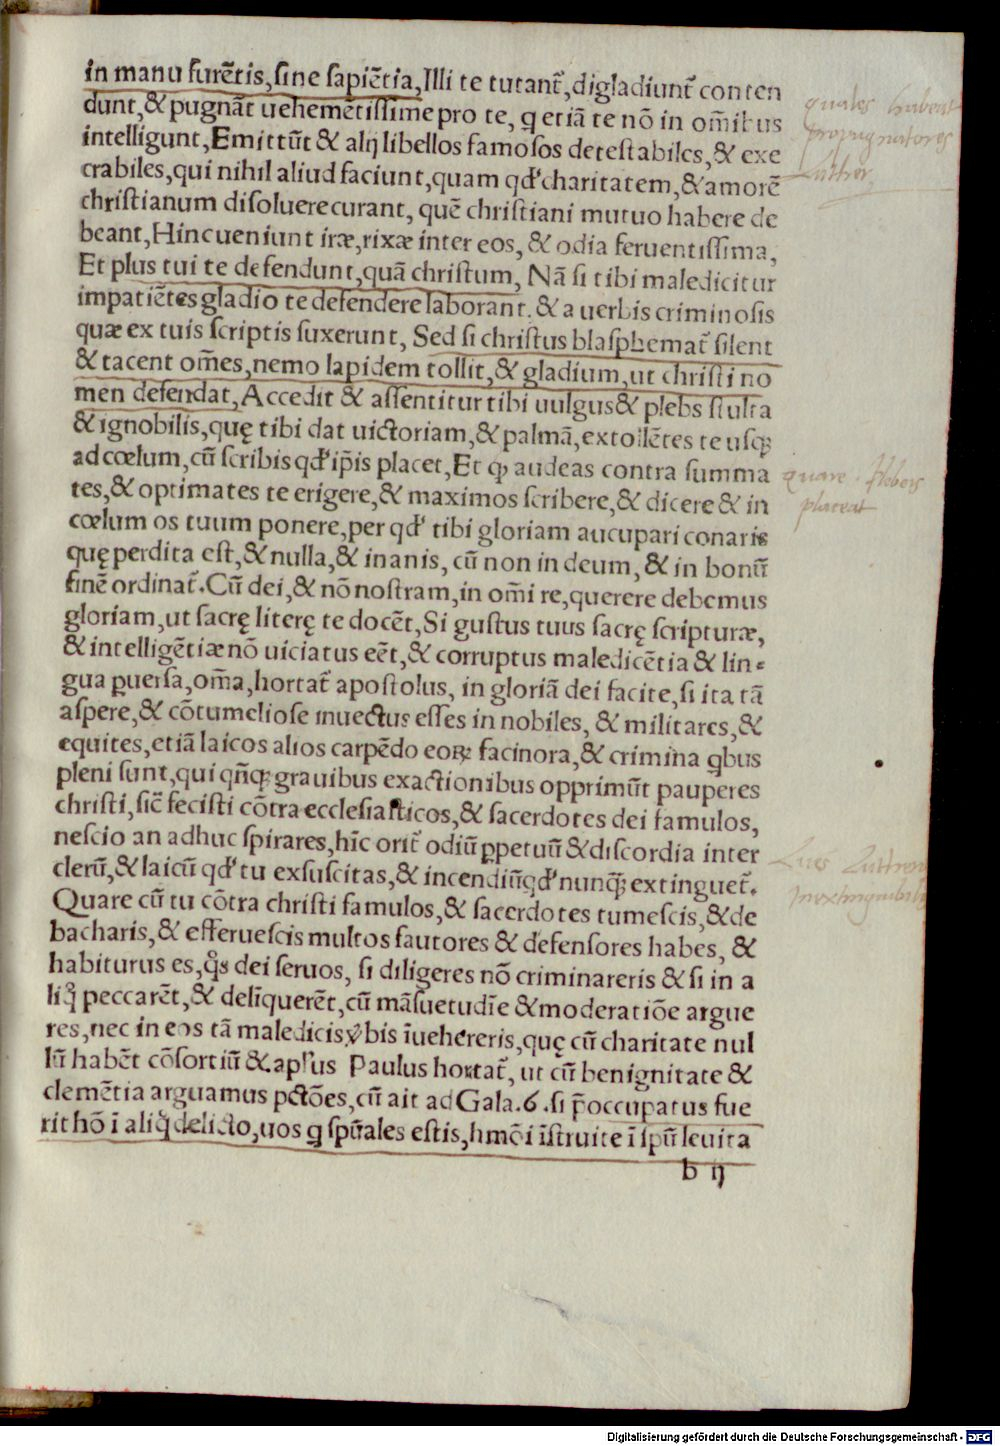 in manu furētis,ſine ſapiētia,Illi te tutant᷑,digladiunt᷑ conten
dunt,& pugnāt uehemētiſſime pro te, q etiā te nō in om̄ibus
intelligunt,Emittūt & alij libellos famoſos deteſtabiles,& exe
crabiles,qui nihil aliud faciunt,quam qd' charitatem,& amorē
chriſtianum diſoluere curant, quē chriſtiani mutuo habere de
beant,Hinc ueniunt iræ,rixæ inter eos, & odia feruentiſſima,
Et plus tui te defendunt,quā chriſtum, Nā ſi tibi maledicitur
impatiētes gladio te defendere laborant. & a uerbis criminoſis
quæ ex tuis ſcriptis ſuxerunt, Sed ſi chriſtus blaſphemat᷑ ſilent
& tacent om̄es,nemo lapidem tollit,& gladium,ut chriſti no
men defendat,Accedit & aſſentitur tibi uulgus & plebs ſtulta
& ignobilis,quę tibi dat uictoriam,& palmā,extollētes te uſqꝫ
ad cœlum,cū ſcribis qd' ip̄is placet,Et ꝙ audeas contra ſumma
tes,& optimates te erigere,& maximos ſcribere,& dicere & in
cœlum os tuum ponere,per qd' tibi gloriam aucupari conaris
quę perdita eſt,& nulla,& inanis, cū non in deum, & in bonū
finē ordinat᷑.Cū dei,& nō noſtram,in om̄i re,querere debemus
gloriam,ut ſacrę literę te docēt,Si guſtus tuus ſacrę ſcripturæ,
& intelligētiæ nō uiciatus eēt,& corruptus maledicētia & lin⸗
gua ꝑuerſa,om̄a,hortat᷑ apoſtolus, in gloriā dei facite,ſi ita tā
aſpere,& cōtumelioſe inuectus eſſes in nobiles, & militares,&
equites,etiā laicos alios carpēdo eoꝝ facinora,& crimina qbus
pleni ſunt,qui qn̄qꝫ grauibus exactionibus opprimūt pauperes
chriſti,ſic̄ feciſti cōtra eccleſiaſticos,& ſacerdotes dei famulos,
neſcio an adhuc ſpirares,hīc orit᷑ odiū ꝑpetuū & diſcordia inter
clerū,& laicū qd' tu exſuſcitas,& incendiū qd' nunqꝫ extinguet᷑.
Quare cū tu cōtra chriſti famulos,& ſacerdotes tumeſcis,& de
bacharis,& efferueſcis multos fautores & defenſores habes, &
habiturus es,qͦs dei ſeruos, ſi diligeres nō criminareris & ſi in a
liqͦ peccarēt,& deliquerēt,cū māſuetudīe & moderatiōe argue
res,nec in eos tā maledicis v̓bis īuehereris,quę cū charitate nul
lū habēt cōſortiū & apl'us Paulus hortat᷑, ut cū benignitate &
clemētia arguamus pctōes,cū ait ad Gala.6.ſi p̄occupatus fue
rit hō ī aliqͦ delicto,uos q ſpūales eſtis,hmōi īſtruite ī ſpū leuita
b ij
quales habeat
propugnatores
Luther
quare plebeis
placeat
Lutheri
inextinguibilis
Digitalisierung gefördert durch die Deutsche Forschungsgemeinschaft - DFG